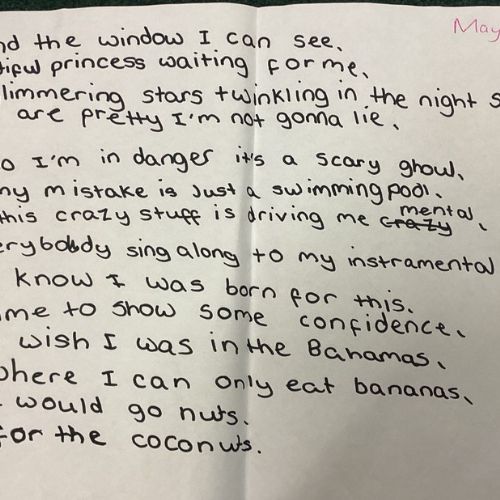 May
nd the window I can see.
tiful princess waiting for me.
limmering stars twinkling in the night s
are pretty I'm not gonna lie.
o I'm in danger it's a scary ghoul.
my mistake is Just a swimming pool.
this crazy stuff is driving me crazy mental.
erybody sing along to my instramental
know I was born for this.
me to show some confidence.
wish I was in the Bahamas.
where I can only eat bananas.
I would go nuts.
for the coconuts.